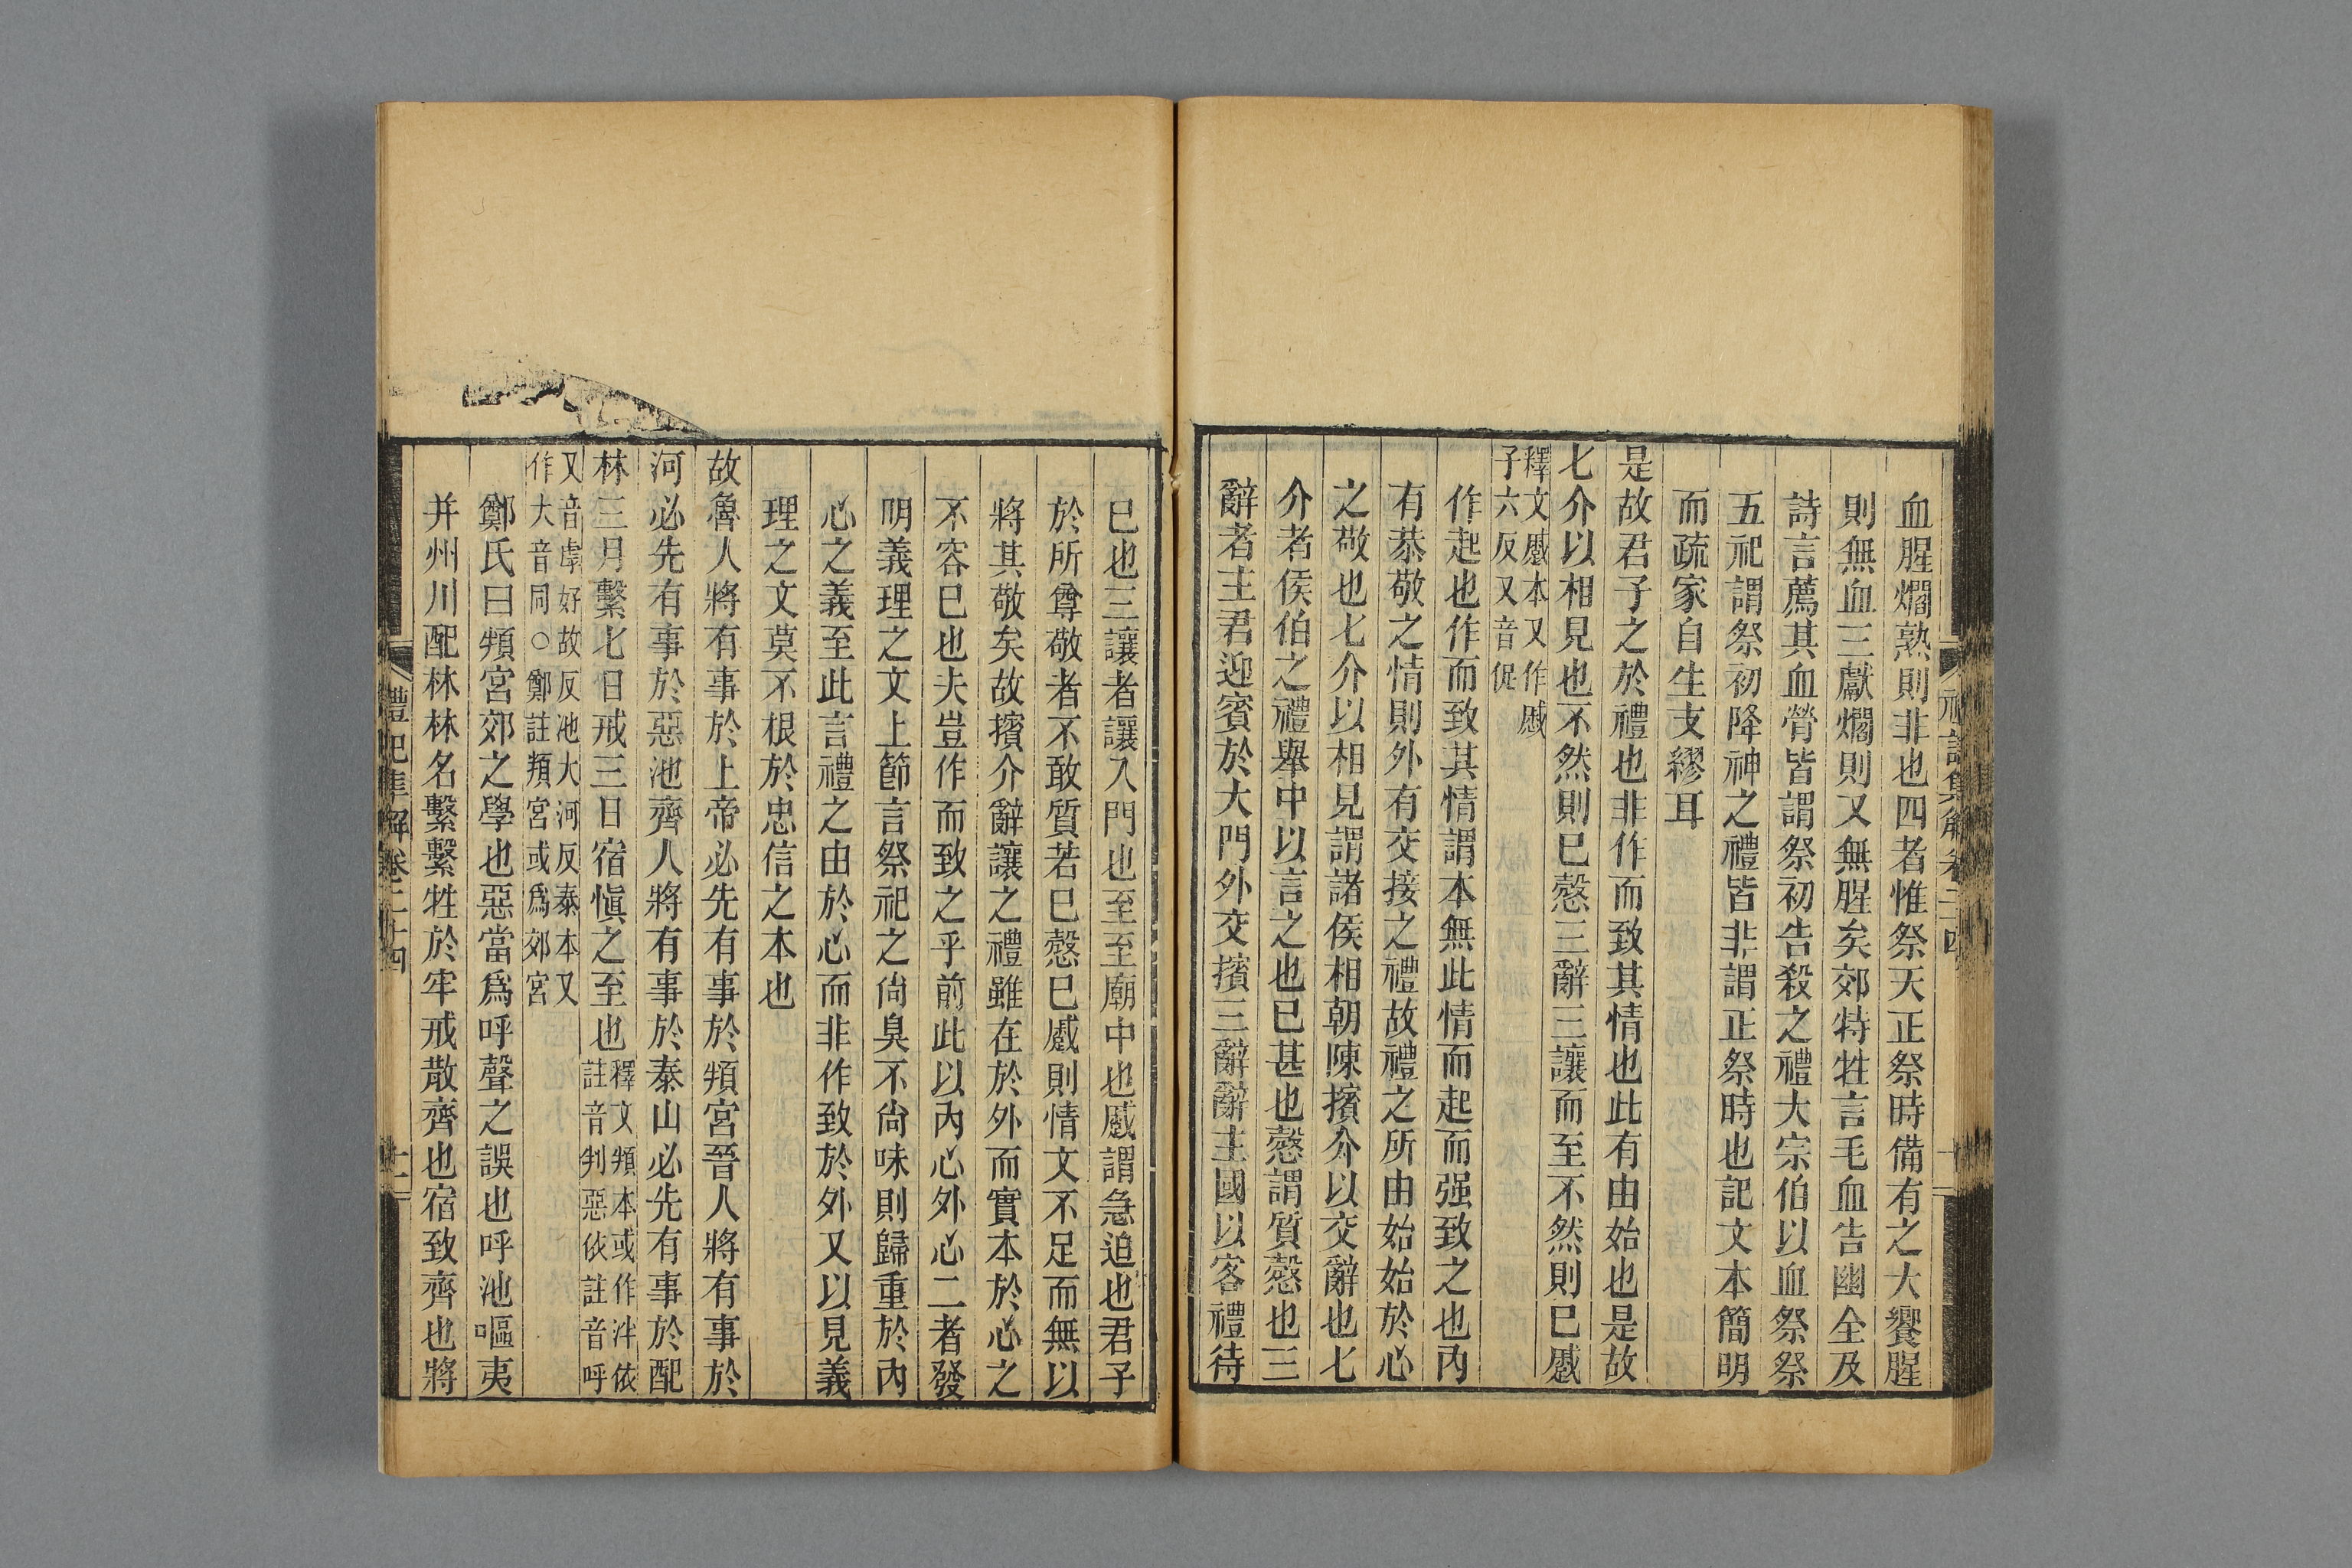 血腥爓熟則非也四者惟祭天正祭時備有之大饗腥
則無血三獻爓則又無腥矣郊特牲言毛血告幽全及
詩言薦其血膋皆謂祭初告殺之禮大宗伯以血祭祭
五祀謂祭初降神之禮皆非謂正祭時也記文本簡明
而疏家自生支繆耳
是故君子之於禮也非作而致其情也此有由始也是故
七介以相見也不然則已慤三辭三讓而至不然則已蹙
釋文慼本又作慼
子六反又音促
作起也作而致其情謂本無此情而起而强致之也內
有恭敬之情則外有交接之禮故禮之所由始始於心
之敬也七介以相見謂諸侯相朝陳擯介以交辭也七
介者侯伯之禮舉中以言之也已甚也慤謂質慤也三
辭者主君迎賓於大門外交擯三辭辭主國以客禮待
已也三讓者讓入門也至至廟中也慼謂急迫也君子
於所尊敬者不敢質若已慤已慼則情文不足而無以
將其敬矣故擯介辭讓之禮雖在於外而實本於心之
不容已也夫豈作而致之乎前此以內心外心二者發
明義理之文上節言祭祀之尙臭不尙味則歸重於內
心之義至此言禮之由於心而非作致於外又以見義
理之文莫不根於忠信之本也
故魯人將有事於上帝必先有事於頖宮晉人將有事於
河必先有事於惡池齊人將有事於泰山必先有事於配
林三月繫七日戒三日宿愼之至也
釋文頖本或作泮依
註音判惡依註音呼
又音虖好故反池大河反泰本又
作大音同○鄭註頖宮或爲郊宮
鄭氏曰頖宮郊之學也惡當爲呼聲之誤也呼池嘔夷
并州川配林林名繫繫牲於牢戒散齊也宿致齊也將
禮記集解卷二十四